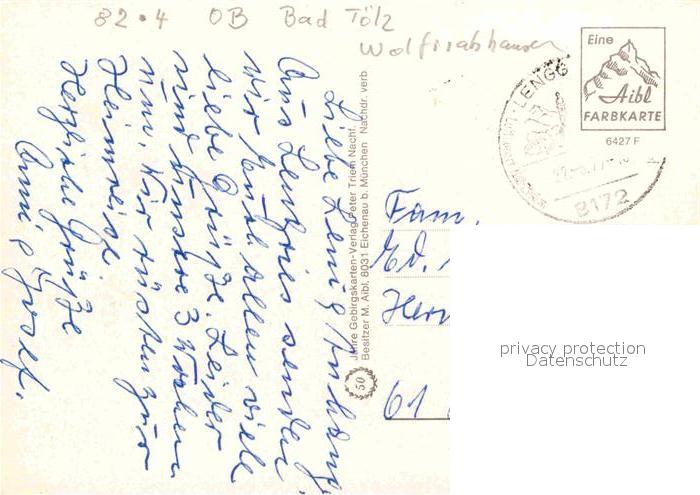 82.4 OB Bad Tölz
Wolfratshausen
Liebe Leni & Anhang,
Aus Lenggries senden
wir Euch allen viele
liebe Grüße. Leider
sind unsere 3 Wochen
um. Wir rüsten zur
Heimreise.
Herzliche Grüße
Anni & Josef.
50 Jahre Gebirgskarten-Verlag Peter Triem Nachf.
Besitzer M. Aibl, 8031 Eichenau b. München Nachdr. verb
Eine
Aibl
FARBKARTE
6427 F
LENGG
8172
Fam.
Ed.
Her
61
privacy protection
Datenschutz